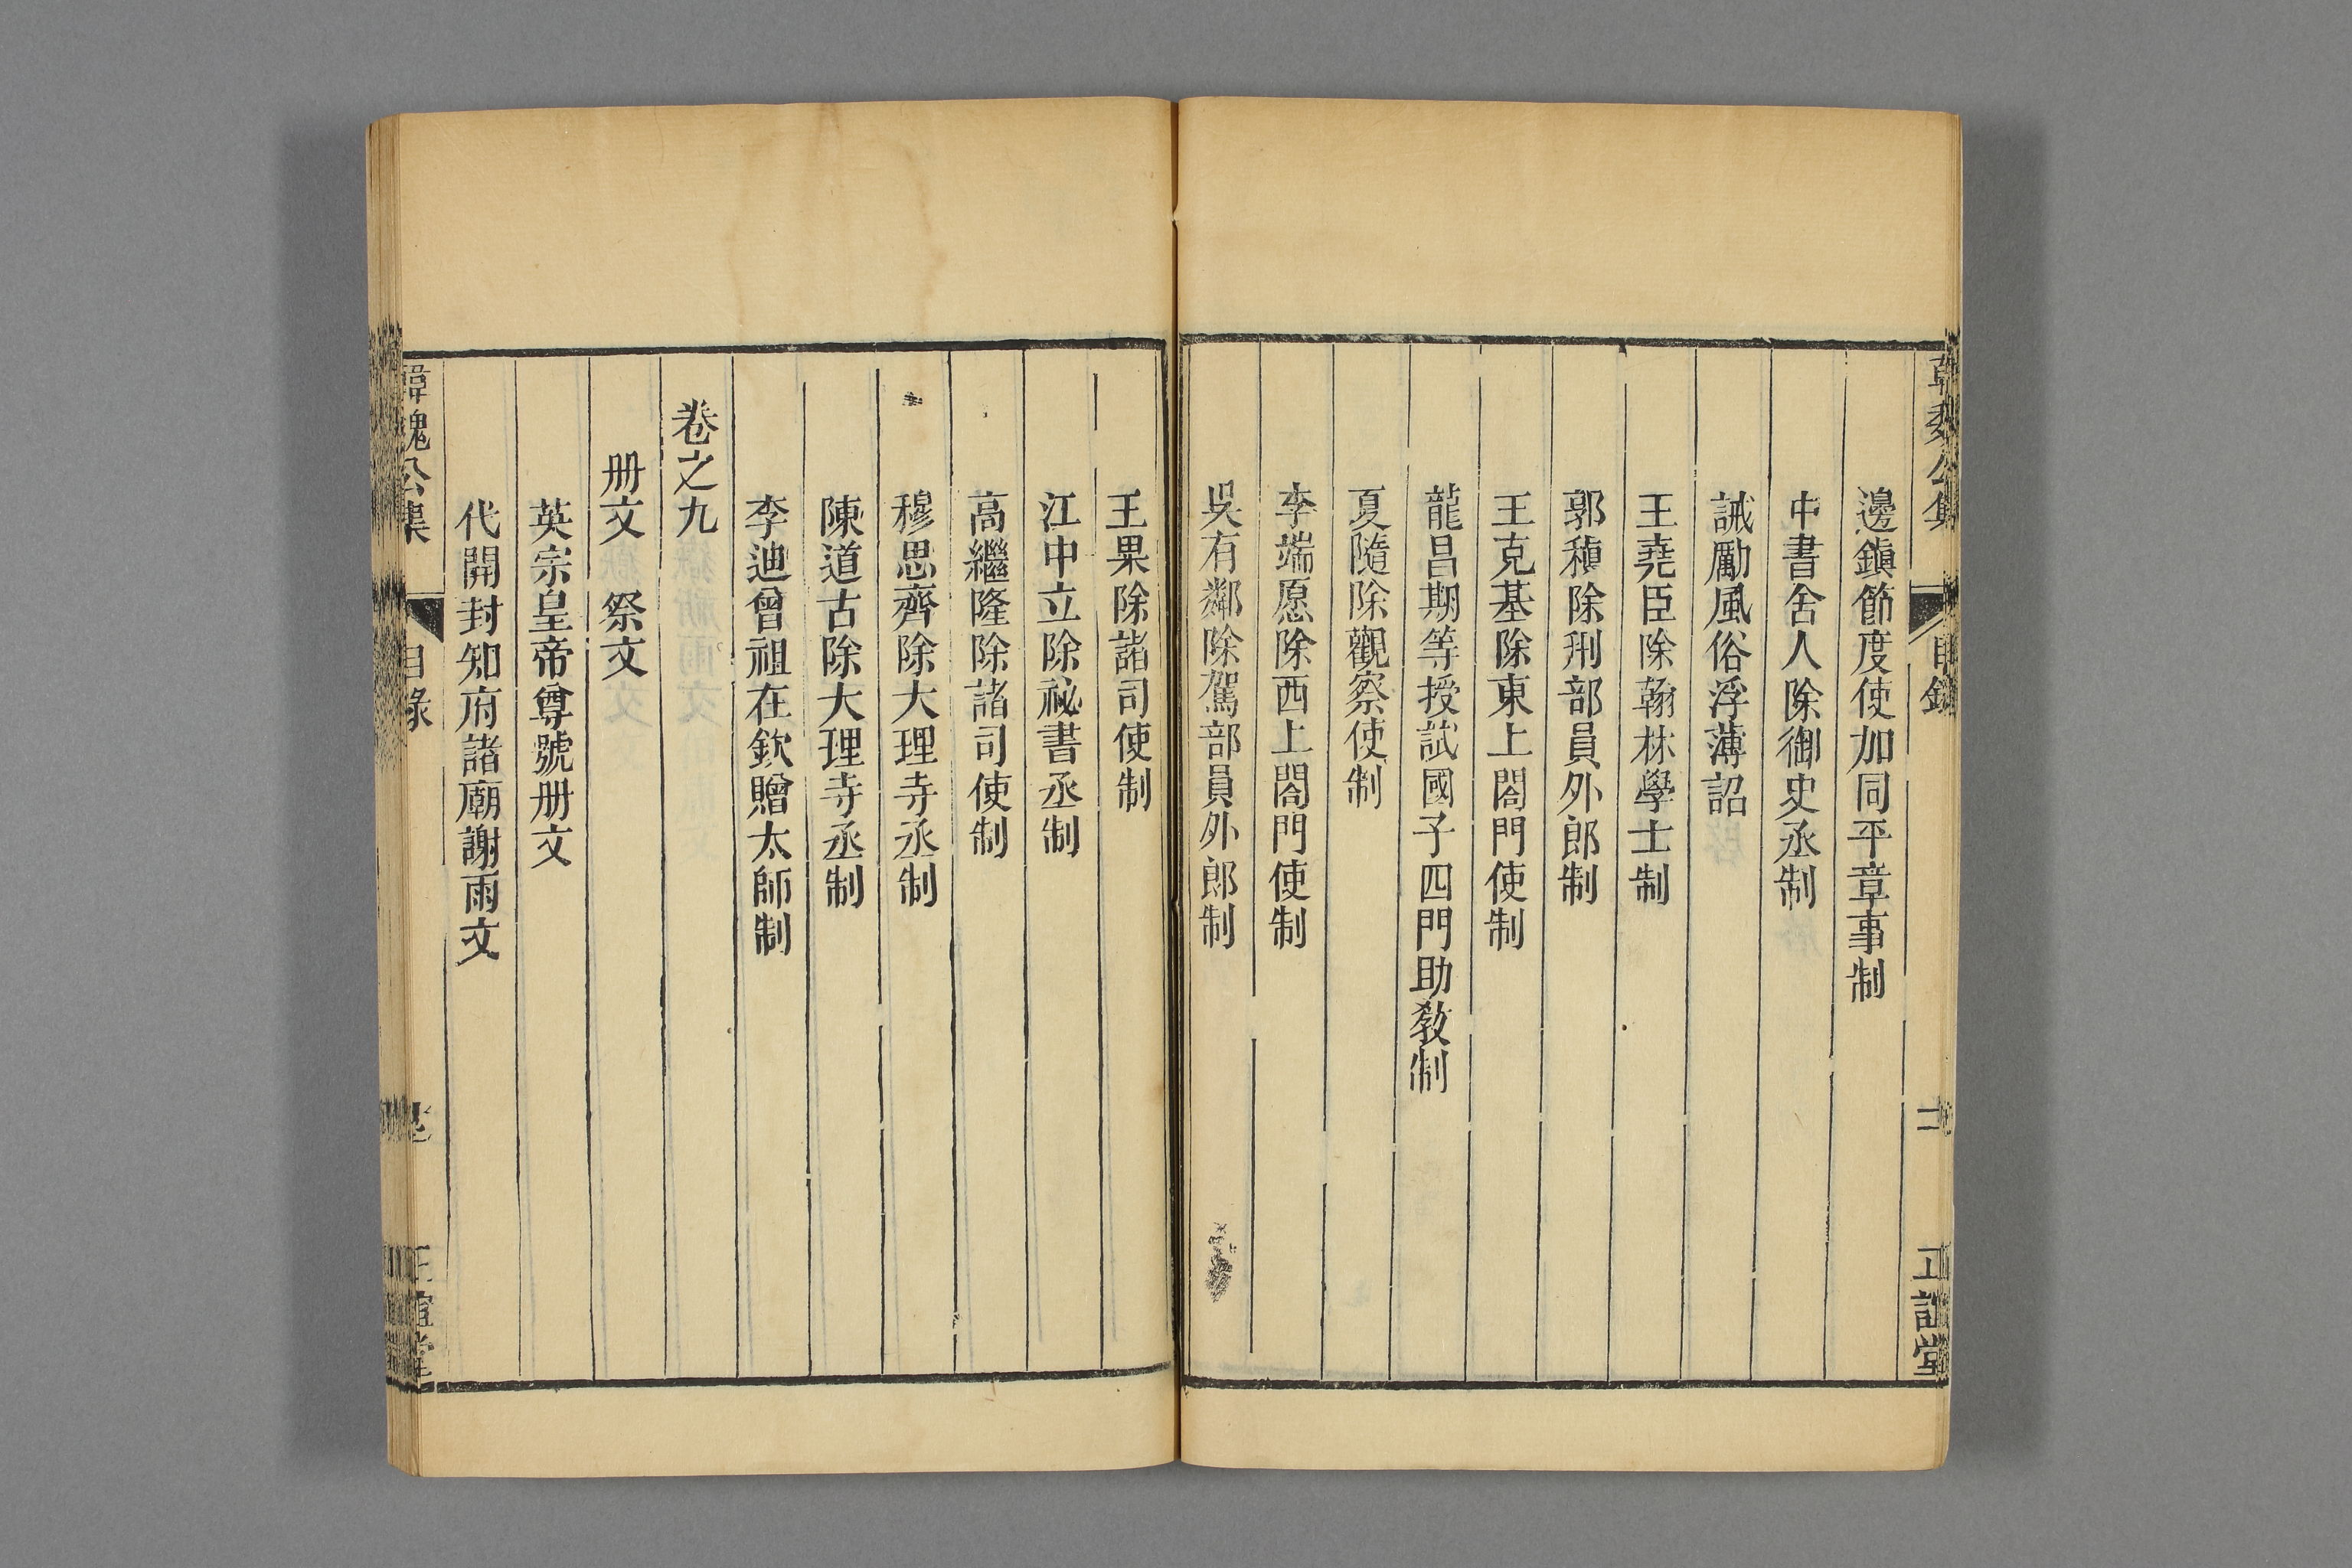 韓魏公集 目錄 十一 正誼堂
邊鎭節度使加同平章事制
中書舍人除御史丞制
誡勵風俗浮薄詔
王堯臣除翰林學士制
郭稹除刑部員外郎制
王克基除東上閤門使制
龍昌期等授試國子四門助敎制
夏隨除觀察使制
李端愿除西上閤門使制
吳有鄰除駕部員外郎制
王果除諸司使制
江中立除祕書丞制
高繼隆除諸司使制
穆思齊除大理寺丞制
陳道古除大理寺丞制
李迪曾祖在欽贈太師制
卷之九
册文 祭文
英宗皇帝尊號册文
代開封知府諸廟謝雨文
韓魏公集 目錄 正誼堂